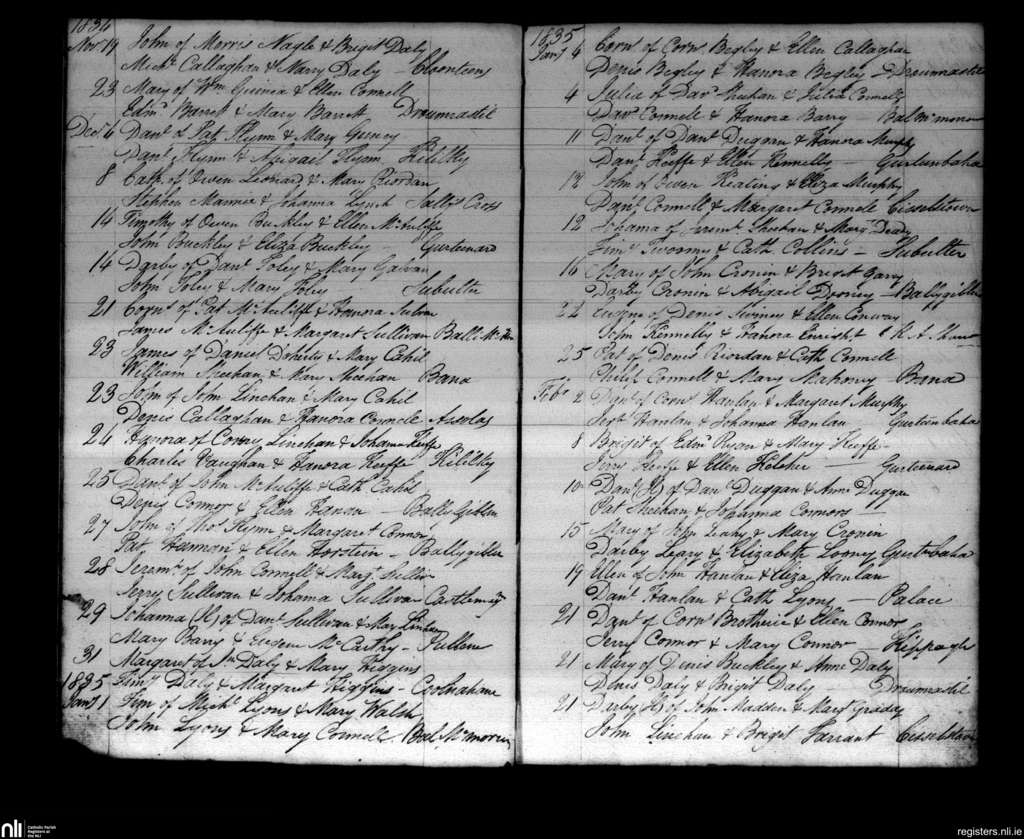 1834
Novr 19 John of Morris Nagle & Brigit Daly
Michl Callaghan & Mary Daly - Cloonteens
23 Mary of Wm Guinea & Ellen Connell
Edmd Barrett & Mary Barrett Droumastil
Decr 6 Danl of Pat Flynn & Mary Guiney
Danl Flynn & Abigail Flynn Kililky
8 Cath of Owen Leonard & Mary Riordan
Stephen & Johanna Lynch Cross
14 Timothy of Owen Buckley & Ellen McAuliffe
John Buckley & Eliza Buckley - Gurteenard
14 Darby of Danl Foley & Mary Galvan
John Foley & Mary Foley Subulter
21 Corns of Pat McAuliffe & Hanora
James McAuliffe & Margaret Sullivan
23 James of Daniel Doherty & Mary Cahil
William Sheehan & Mary Sheehan Bana
23 John of John Linehan & Mary Cahil
Denis Callaghan & Hanora Connell Assolas
24 Hanora of Corny Linehan & Johanna Keeffe
Charles Vaughan & Hanora Keeffe Kililky
25 Danl of John McAuliffe & Cath Cahil
Denis Connor & Ellen Hanan - Bally Giblin
27 John of Thos Flynn & Margaret Connor
Pat Hannon & Ellen - Ballygiblin
28 Jeremh of John Connell & Margt Sullivn
Jerry Sullivan & Johanna Sullivan - Castlemagr
29 Johanna of Danl Sullivan & Mary Linehan
Mary Barry & Eugene McCarthy - Pulleen
31 Margaret of Jn Daly & Mary Higgins
1835 Timy Daly & Margaret Higgins - Coolnahane
Jany 1 Tim of Michl Lyons & Mary Walsh
John Lyons & Mary Connell Bal McMorrin
1835
Jany 4 Corns of Corns Begley & Ellen Callaghan
Denis Begley & Hanora Begley - Droumastil
4 Julia of Davd Sheehan & Julia Connell
Davd Connell & Hanora Barry
11 Danl of Danl Duggan & Hanora Murphy
Danl Keeffe & Ellen Kennelly - Gurtunbaha
12 John of Owen Keating & Eliza Murphy
Danl Connell & Margaret Connell Cisseltown
12 Johanna of Jeremh Sheehan & Mary Deady
Timy Twoomy & Cath Collins - Subulter
16 Mary of John Cronin & Brigt Barry
Darby Cronin & Abigail Dooney - Ballygiblin
22 Eugene of Denis Sweeney & Ellen Conway
John Kennelly & Hanora Enright
25 Pat of Denis Riordan & Cath Connell
Philip Connell & Mary Mahony - Bana
Feby 2 Danl of Corns Hanlan & Margaret Murphy
Hanlan & Johanna Hanlan Gurtunbaha
8 Brigit of Edmd Ryan & Mary Keeffe
Jerry Keeffe & Ellen - Gurteenard
10 Danl of Danl Duggan & Anne Duggan
Pat Sheehan & Johanna Connors
15 Mary of John Leahy & Mary Cronin
Darby Leary & Elizabeth Looney Gurtunbaha
19 Ellen of John Hanlan & Eliza Hanlan
Danl Hanlan & Cath Lyons - Palace
21 Danl of Corns Brotherie & Ellen Connor
Jerry Connor & Mary Connor - Kippagh
21 Mary of Denis Buckley & Anne Daly
Denis Daly & Brigit Daly - Droumastil
21 Darby of John Madden & Margt Gradey
John Linehan & Brigit Cisseltown
nli Catholic Parish
Registers at
the NLI
registers.nli.ie